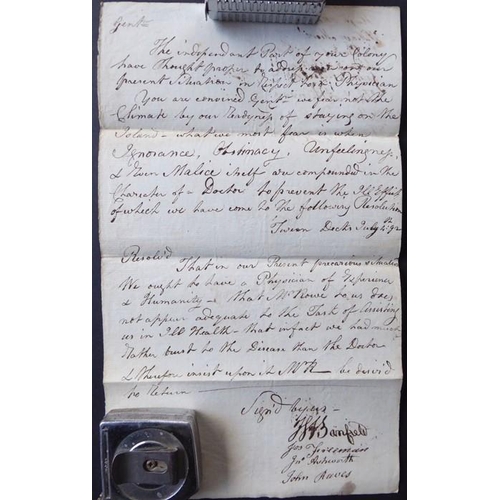 Gentn
The independant Part of your Colony
have thought proper to address you on our
present Situation in respect to a Physician
You are convinced Gentn we fear not the
Climate by our readyness of staying on the
Island - what we most fear is when
Ignorance, Obstinacy, Unfeelingness,
& Even Malice itself are compounded in the
Character of a Doctor to prevent the Ill Effects
of which we have come to the following Resolution
Tween Decks July 4th 92
Resolv'd That in our Present precarious situation
We ought to have a Physician of Experience
& Humanity & that Mr Rowe to us does
not appear adequate to the Task of
us in Ill Health - that infact we had much
Rather trust to the Disease than the Doctor
& therefore insist upon it Mr R - be desir'd
to Return
Sign'd
Banfield
Jos Freeman
Jno Ashworth
John Raves